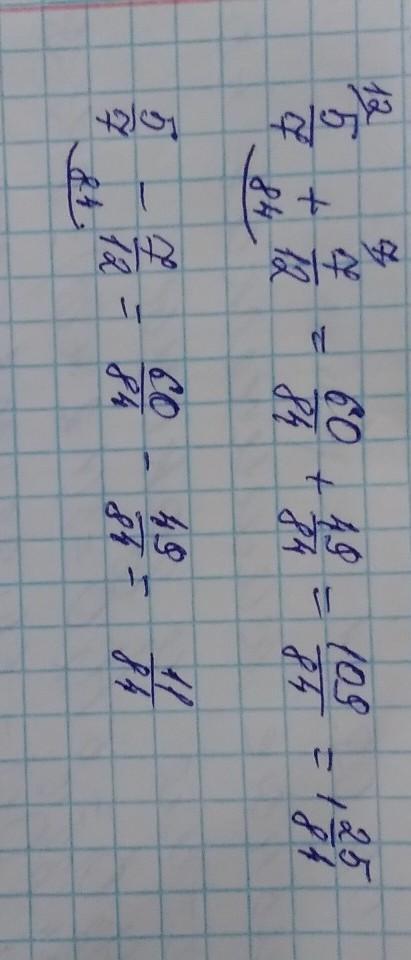 12 5/7 + 7 7/12 = 60/84 + 49/84 = 109/84 = 1 25/84
84
5/7 - 7/12 = 60/84 - 49/84 = 11/84
84.